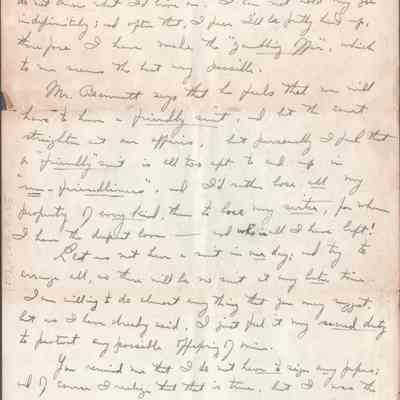 do not know what I'd live on. I can not hold my job
indefinitely; and after that, I fear I'll be pretty hard up,
therefore I have made the "gambling offer", which
to me seems the best way possible.
Mr. Bennett says that he feels that we will
have to have a friendly suit, and let the court
straighten out our affairs, but personally I feel that
a "friendly" suit is all too apt to end up in
"un-friendliness", and I'd rather lose all my
property of every kind, than to lose my sister, for whom
I have the deepest love — and who is all I have left!
Let us not have a suit in our day; and try to
arrange all, so there will be no suit at any later time.
I am willing to do almost anything that you may suggest,
but as I have already said, I just feel it my sacred duty
to protect any possible offspring of mine.
You remind me that I do not have to sign any papers;
and of course I realize that that is true, but I was the